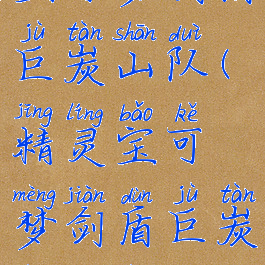 jù tàn shān duì
巨炭山队(
jīng líng bǎo kě
精灵宝可
mèng jiàn dùn jù tàn
梦剑盾巨炭